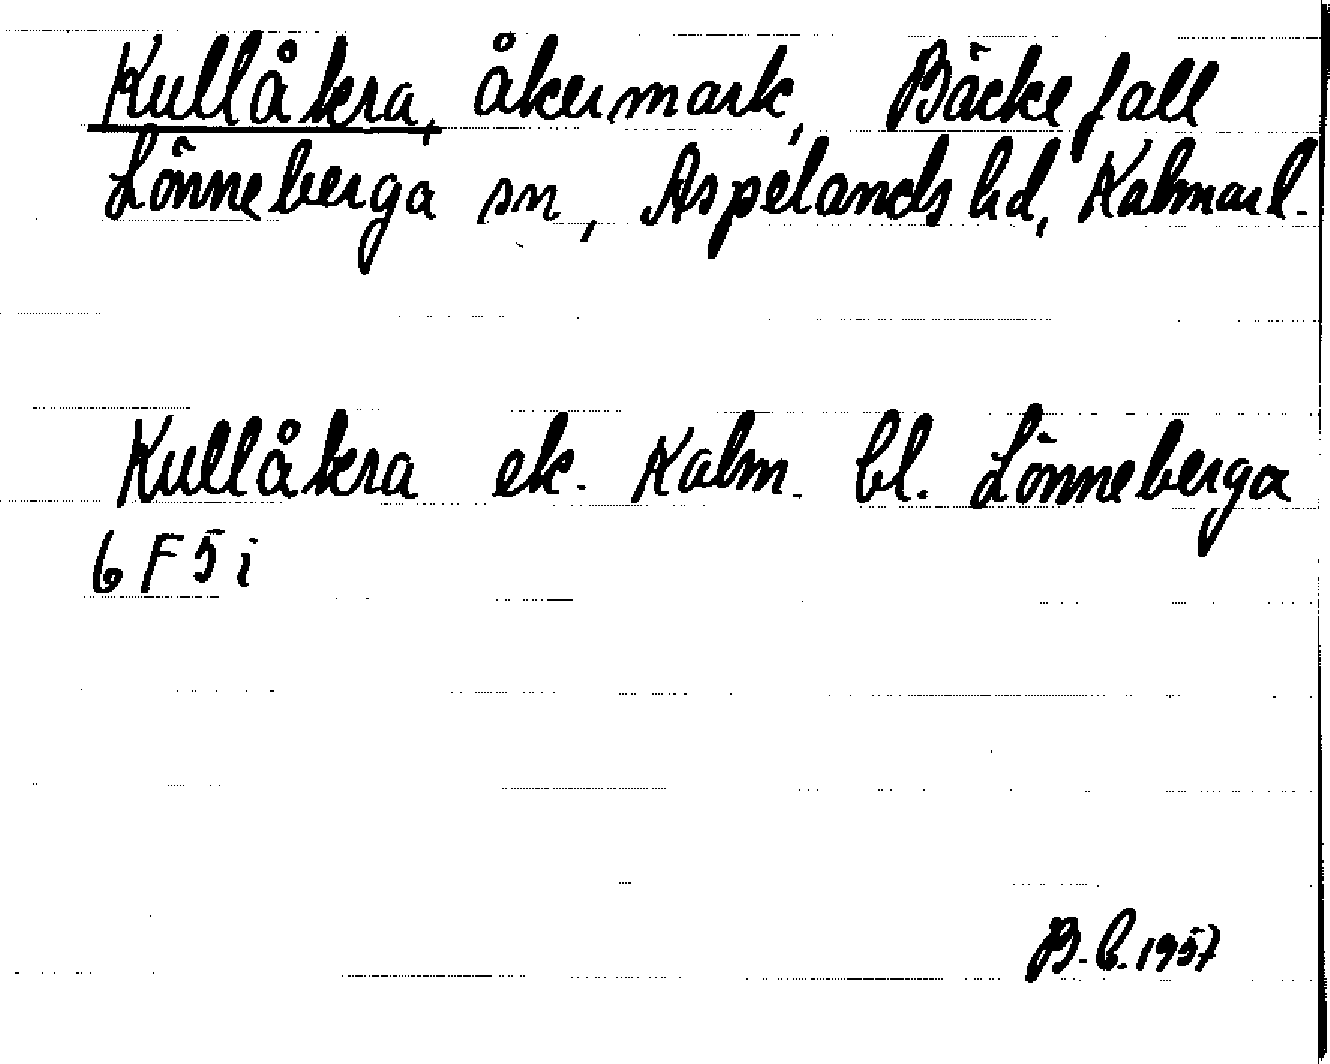 Kullåkra, åkermark, Bäckefall
Lönneberga sn, Aspelands hd, Kalmar l.
Kullåkra ek. Kalm. bl. Lönneberga
6 F 5 i
B.b. 1957